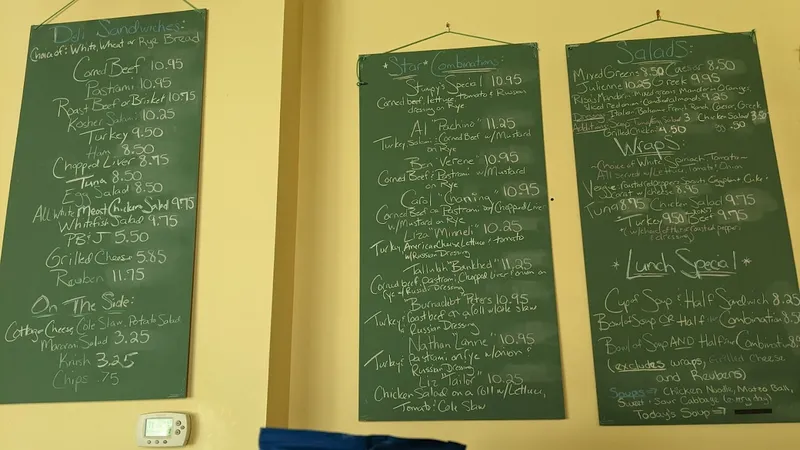 Deli Sandwiches:
Choice of: White, Wheat or Rye Bread
Corned Beef 10.95
Pastrami 10.95
Roast Beef or Brisket 10.75
Kosher Salami 10.25
Turkey 9.50
Ham 8.50
Chopped Liver 8.75
Tuna 8.50
Egg Salad 8.50
All White Meat Chicken Salad 9.75
Whitefish Salad 9.75
PB & J 5.50
Grilled Cheese 5.85
Reuben 11.75
On The Side:
Cottage Cheese, Cole Slaw, Potato Salad
Macaroni Salad 3.25
Knish 3.25
Chips .75
*Star* Combinations:
Stumpy's Special 10.95
Corned beef, lettuce, tomato & Russian
dressing on Rye
Al "Pachino" 11.25
Turkey, Salami, Corned Beef w/Mustard
on Rye
Ben "Verene" 10.95
Corned Beef & Pastrami w/Mustard
on Rye
Carol "Channing" 10.95
Corned Beef or Pastrami w/Chopped Liver
w/Mustard on Rye
Liza "Minneli" 10.25
Turkey, American Cheese, Lettuce & tomato
w/Russian Dressing
Tallulah "Bankhed" 11.25
Corned beef, Pastrami, Chopped Liver & onion on
Rye w/Russian Dressing
Burnadet Peters 10.95
Turkey & roast beef on a roll w/Cole Slaw
Russian Dressing
Nathan "Lanne" 10.95
Turkey & Pastrami on rye w/onion &
Russian Dressing
Liz "Tailor" 10.25
Chicken Salad on a roll w/Lettuce,
Tomato & Cole Slaw
Salads:
Mixed Greens 3.50 Caesar 8.50
Julienne 10.25 Greek 9.95
9.25
Dressing: Italian, Balsamic, French, Ranch, Caesar, Greek
Chicken Salad 3.50
Grilled Chicken 4.50 Egg .50
Wraps:
Choice of White, Spinach, Tomato
All served w/Lettuce, Tomato & Onion
Veggie
Carrot w/cheese 8.95
Tuna 8.95 Chicken Salad 9.75
Turkey 9.50 Beef 9.75
& dressing)
*Lunch Special*
Cup of Soup & Half Sandwich 8.25
Bowl of Soup OR Half Combination 8.50
Bowl of Soup AND Half Combination
(excludes wraps, Grilled Cheese
and Reubens)
Soups ⇒ Chicken Noodle, Matzo Ball,
Sweet & Sour Cabbage (everyday)
Today's Soup ⇒